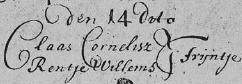 den 14 dito
Claas Cornelisz
Rentje Willems } Trijntje